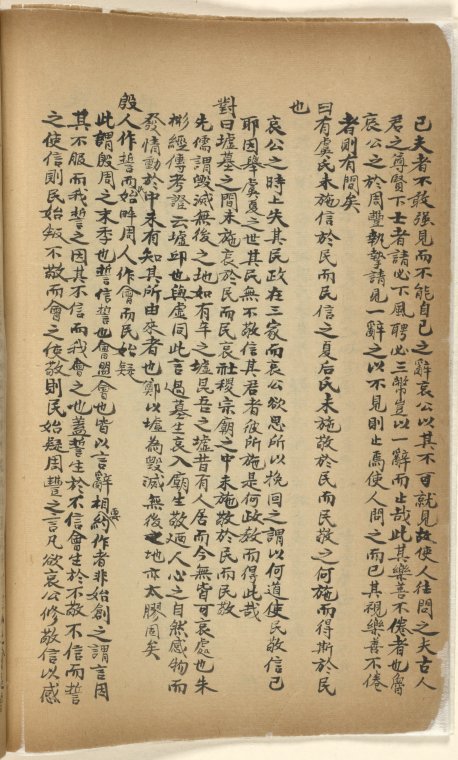 已夫者不敢强見而不能自已之辭哀公以其不可就見故使人往問之夫古人
君之尊賢下士者請必下風聘必三幣豈以一辭而止哉此其樂善不倦者也魯
哀公之於周豐執摯請見一辭之以不見則止焉使人問之而已其視樂善不倦
者則有間矣
曰有虞氏未施信於民而民信之夏后氏未施敬於民而民敬之何施而得斯於民
也
哀公之時上失其民政在三家而哀公欲思所以挽回之謂以何道使民敬信己
耶因舉虞夏之世其民無不敬信其君者彼所施是何政教而得此哉
對曰墟墓之間未施哀於民而民哀社稷宗廟之中未施敬於民而民敬
先儒謂毀滅無後之地如有莘之墟昆吾之墟昔有人居而今無皆可哀處也朱
彬經傳考證云墟邱也與虛同此言過墓生哀入廟生敬迺人心之自然感物而
發情動於中未有知其所由來者也鄭以墟為毀滅無後之地亦太膠固矣
殷人作誓而民始畔周人作會而民始疑
此謂殷周之末季也誓信誓也會盟會也皆以言辭相約要作者非始創之謂言因
其不服而我誓之因其不信而我會之也蓋誓生於不信會生於不敬不信而誓
之使信則民始叛不敬而會之使敬則民始疑周豐之言凡欲哀公修敬信以感